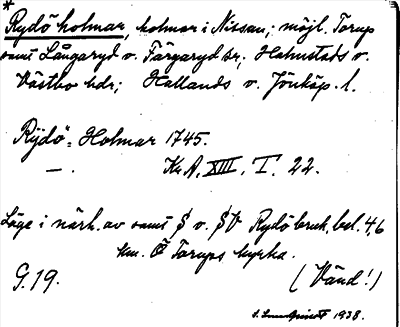 *
Rydö holmar, holmar i Nissan; möjl. Torup
samt Långaryd o. Färgaryd snr; Halmstads o.
Västbo hdr; Hallands o. Jönköp. l.
Rÿdö-Holmar 1745.
—. Kr.A. XIII. I. 22.
Läge i närh. av samt S o. SV Rydöbruk, bel. 4,6
km. Ö Torups kyrka.
G. 19. (Vänd!)
S. 1938.